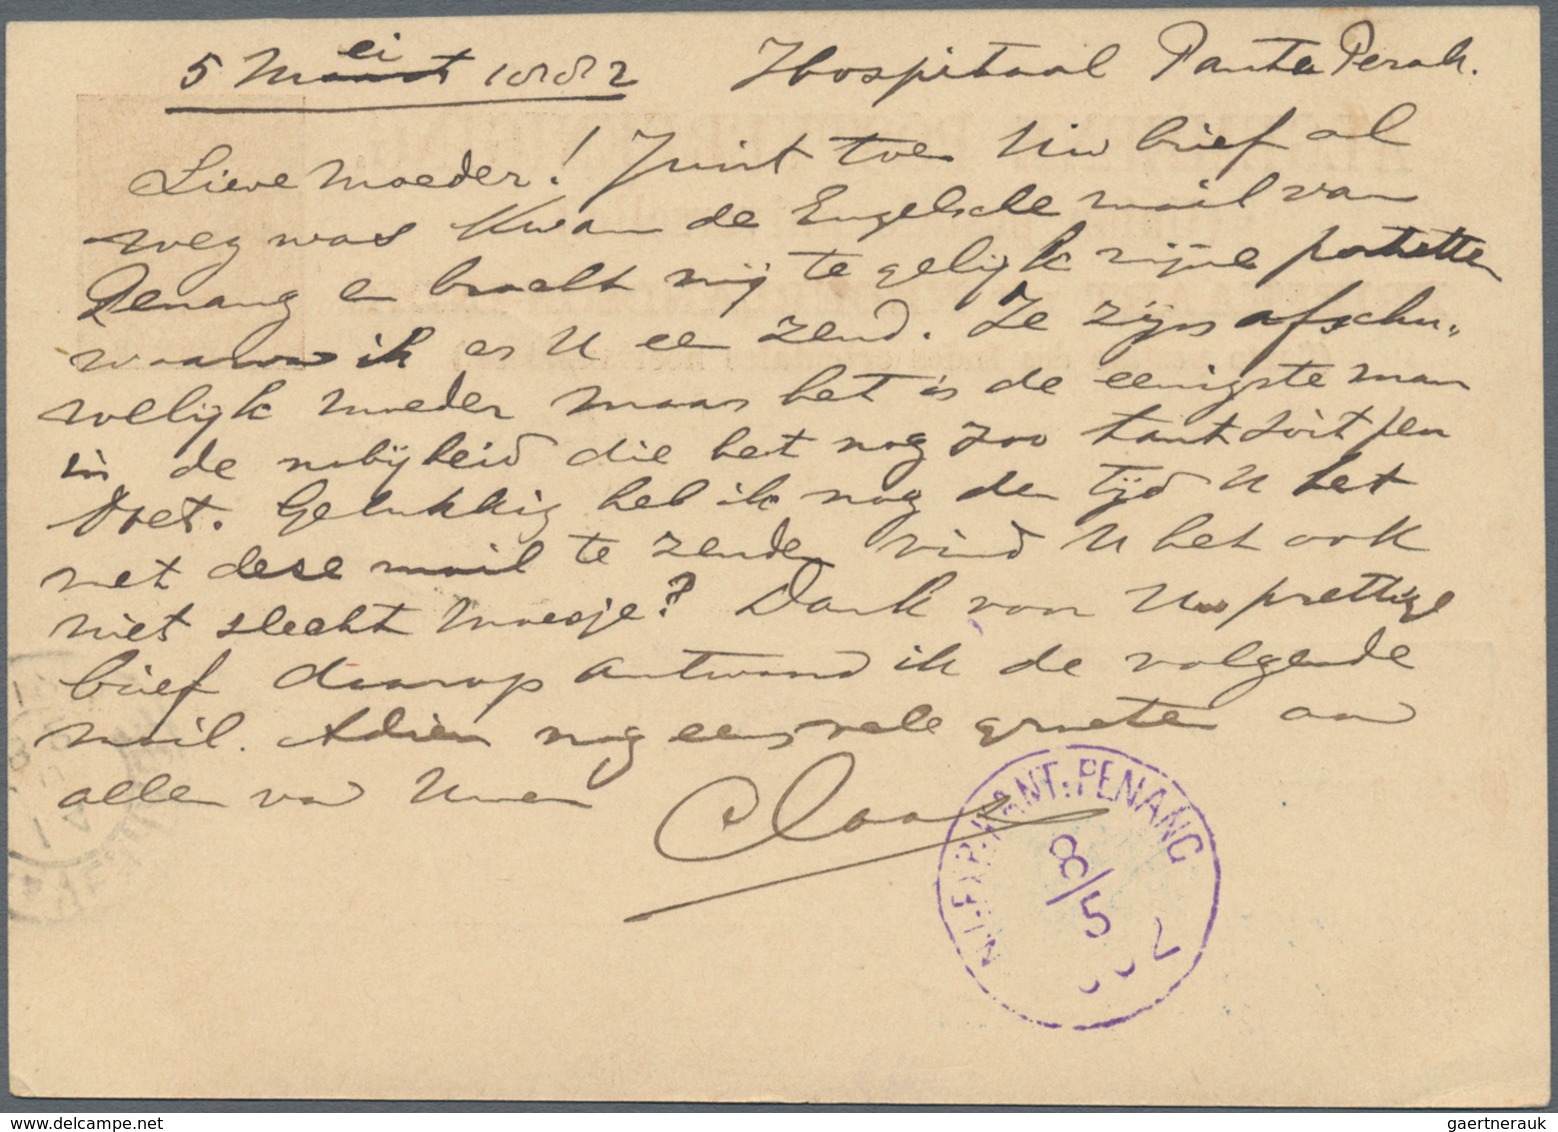 5 Mei 1882 Hospitaal Pante Perak.
Lieve Moeder! Juist toen Uw brief al
weg was kwam de Engelsche mail van
Penang en bracht mij te gelijk mijne portretten
waarvan ik er U een zend. Ze zijn afschu„
welijk moeder maar het is de eenigste man
in de nabijheid die het nog zoo tant soit peu
doet. Gelukkig heb ik nog den tijd U het
met deze mail te zenden vind U het ook
niet slecht moesje? Dank voor Uw prettige
brief daarop antwoord ik de volgende
mail. Adieu nog eens vele groeten aan
allen van Uwen
Claas
N.I. POSTAGENT: PENANG
8/5
2
gaertnerauk @ delcampe.net